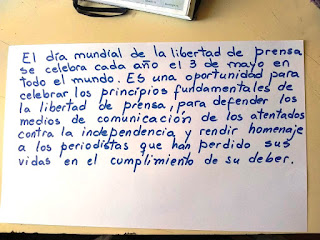 El día mundial de la libertad de prensa
se celebra cada año el 3 de mayo en
todo el mundo. Es una oportunidad para
celebrar los principios fundamentales de
la libertad de prensa, para defender los
medios de comunicación de los atentados
contra la independencia y rendir homenaje
a los periodistas que han perdido sus
vidas en el cumplimiento de su deber.